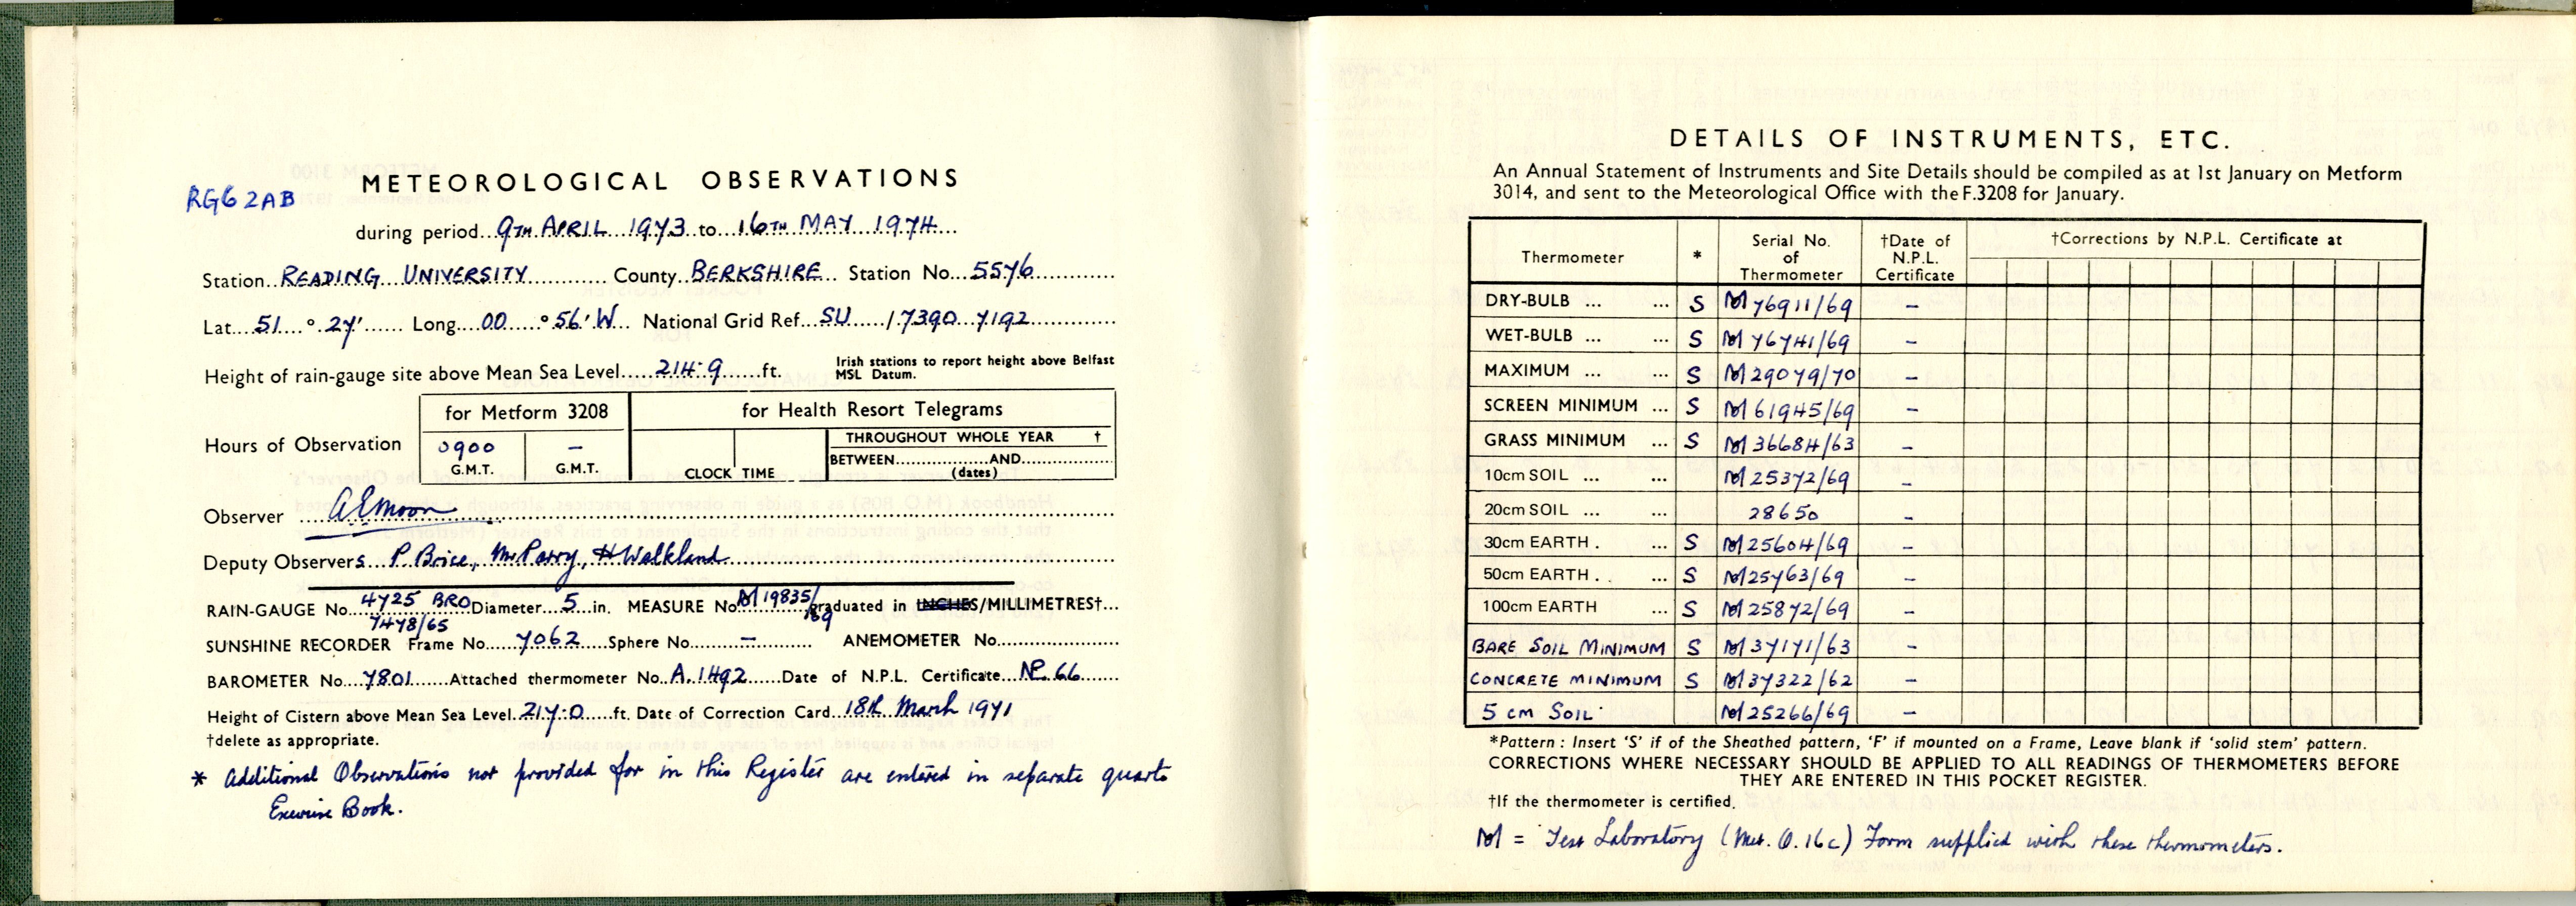 METEOROLOGICAL OBSERVATIONS
RG6 2AB
during period...9TH APRIL 1973 to 16TH MAY 1974...
Station..READING UNIVERSITY..........County..BERKSHIRE..Station No...5576..........
Lat...51...°.27'......Long...00...°56'W...National Grid Ref...SU...../.7390 7192..........
Height of rain-gauge site above Mean Sea Level.....214.9......ft.
Irish stations to report height above Belfast
MSL Datum.
for Metform 3208
for Health Resort Telegrams
Hours of Observation
0900
–
G.M.T.
G.M.T.
CLOCK TIME
THROUGHOUT WHOLE YEAR †
BETWEEN...............AND...............
(dates)
Observer ....AEMoon..........
Deputy Observers P Brice, M Parry, H Walkland..........
RAIN-GAUGE No...4725 BRO..Diameter...5...in. MEASURE No..M 19835/69 graduated in INCHES/MILLIMETRES†...
7478/65
SUNSHINE RECORDER Frame No......7062.....Sphere No.......–.......... ANEMOMETER No..........
BAROMETER No....7801......Attached thermometer No..A.1492.....Date of N.P.L. Certificate...NP. 66......
Height of Cistern above Mean Sea Level..217.0.....ft. Date of Correction Card...18th March 1971
†delete as appropriate.
* Additional Observations not provided for in this Register are entered in separate quarto
Exercise Book.
DETAILS OF INSTRUMENTS, ETC.
An Annual Statement of Instruments and Site Details should be compiled as at 1st January on Metform
3014, and sent to the Meteorological Office with the F.3208 for January.
Thermometer * Serial No. of Thermometer †Date of N.P.L. Certificate †Corrections by N.P.L. Certificate at
DRY-BULB ... ... S M 76911/69 –
WET-BULB ... ... S M 76741/69 –
MAXIMUM ... ... S M 29079/70 –
SCREEN MINIMUM ... S M 61945/69 –
GRASS MINIMUM ... S M 36684/63 –
10cm SOIL ... ... M 25372/69 –
20cm SOIL ... ... 28650 –
30cm EARTH . ... S M 25604/69 –
50cm EARTH . . ... S M 25763/69 –
100cm EARTH ... S M 25872/69 –
BARE SOIL MINIMUM S M 37171/63 –
CONCRETE MINIMUM S M 37322/62 –
5 cm SOIL M 25266/69 –
*Pattern : Insert 'S' if of the Sheathed pattern, 'F' if mounted on a Frame, Leave blank if 'solid stem' pattern.
CORRECTIONS WHERE NECESSARY SHOULD BE APPLIED TO ALL READINGS OF THERMOMETERS BEFORE
THEY ARE ENTERED IN THIS POCKET REGISTER.
†If the thermometer is certified.
M = Test Laboratory (Met. O. 16c) Form supplied with these thermometers.